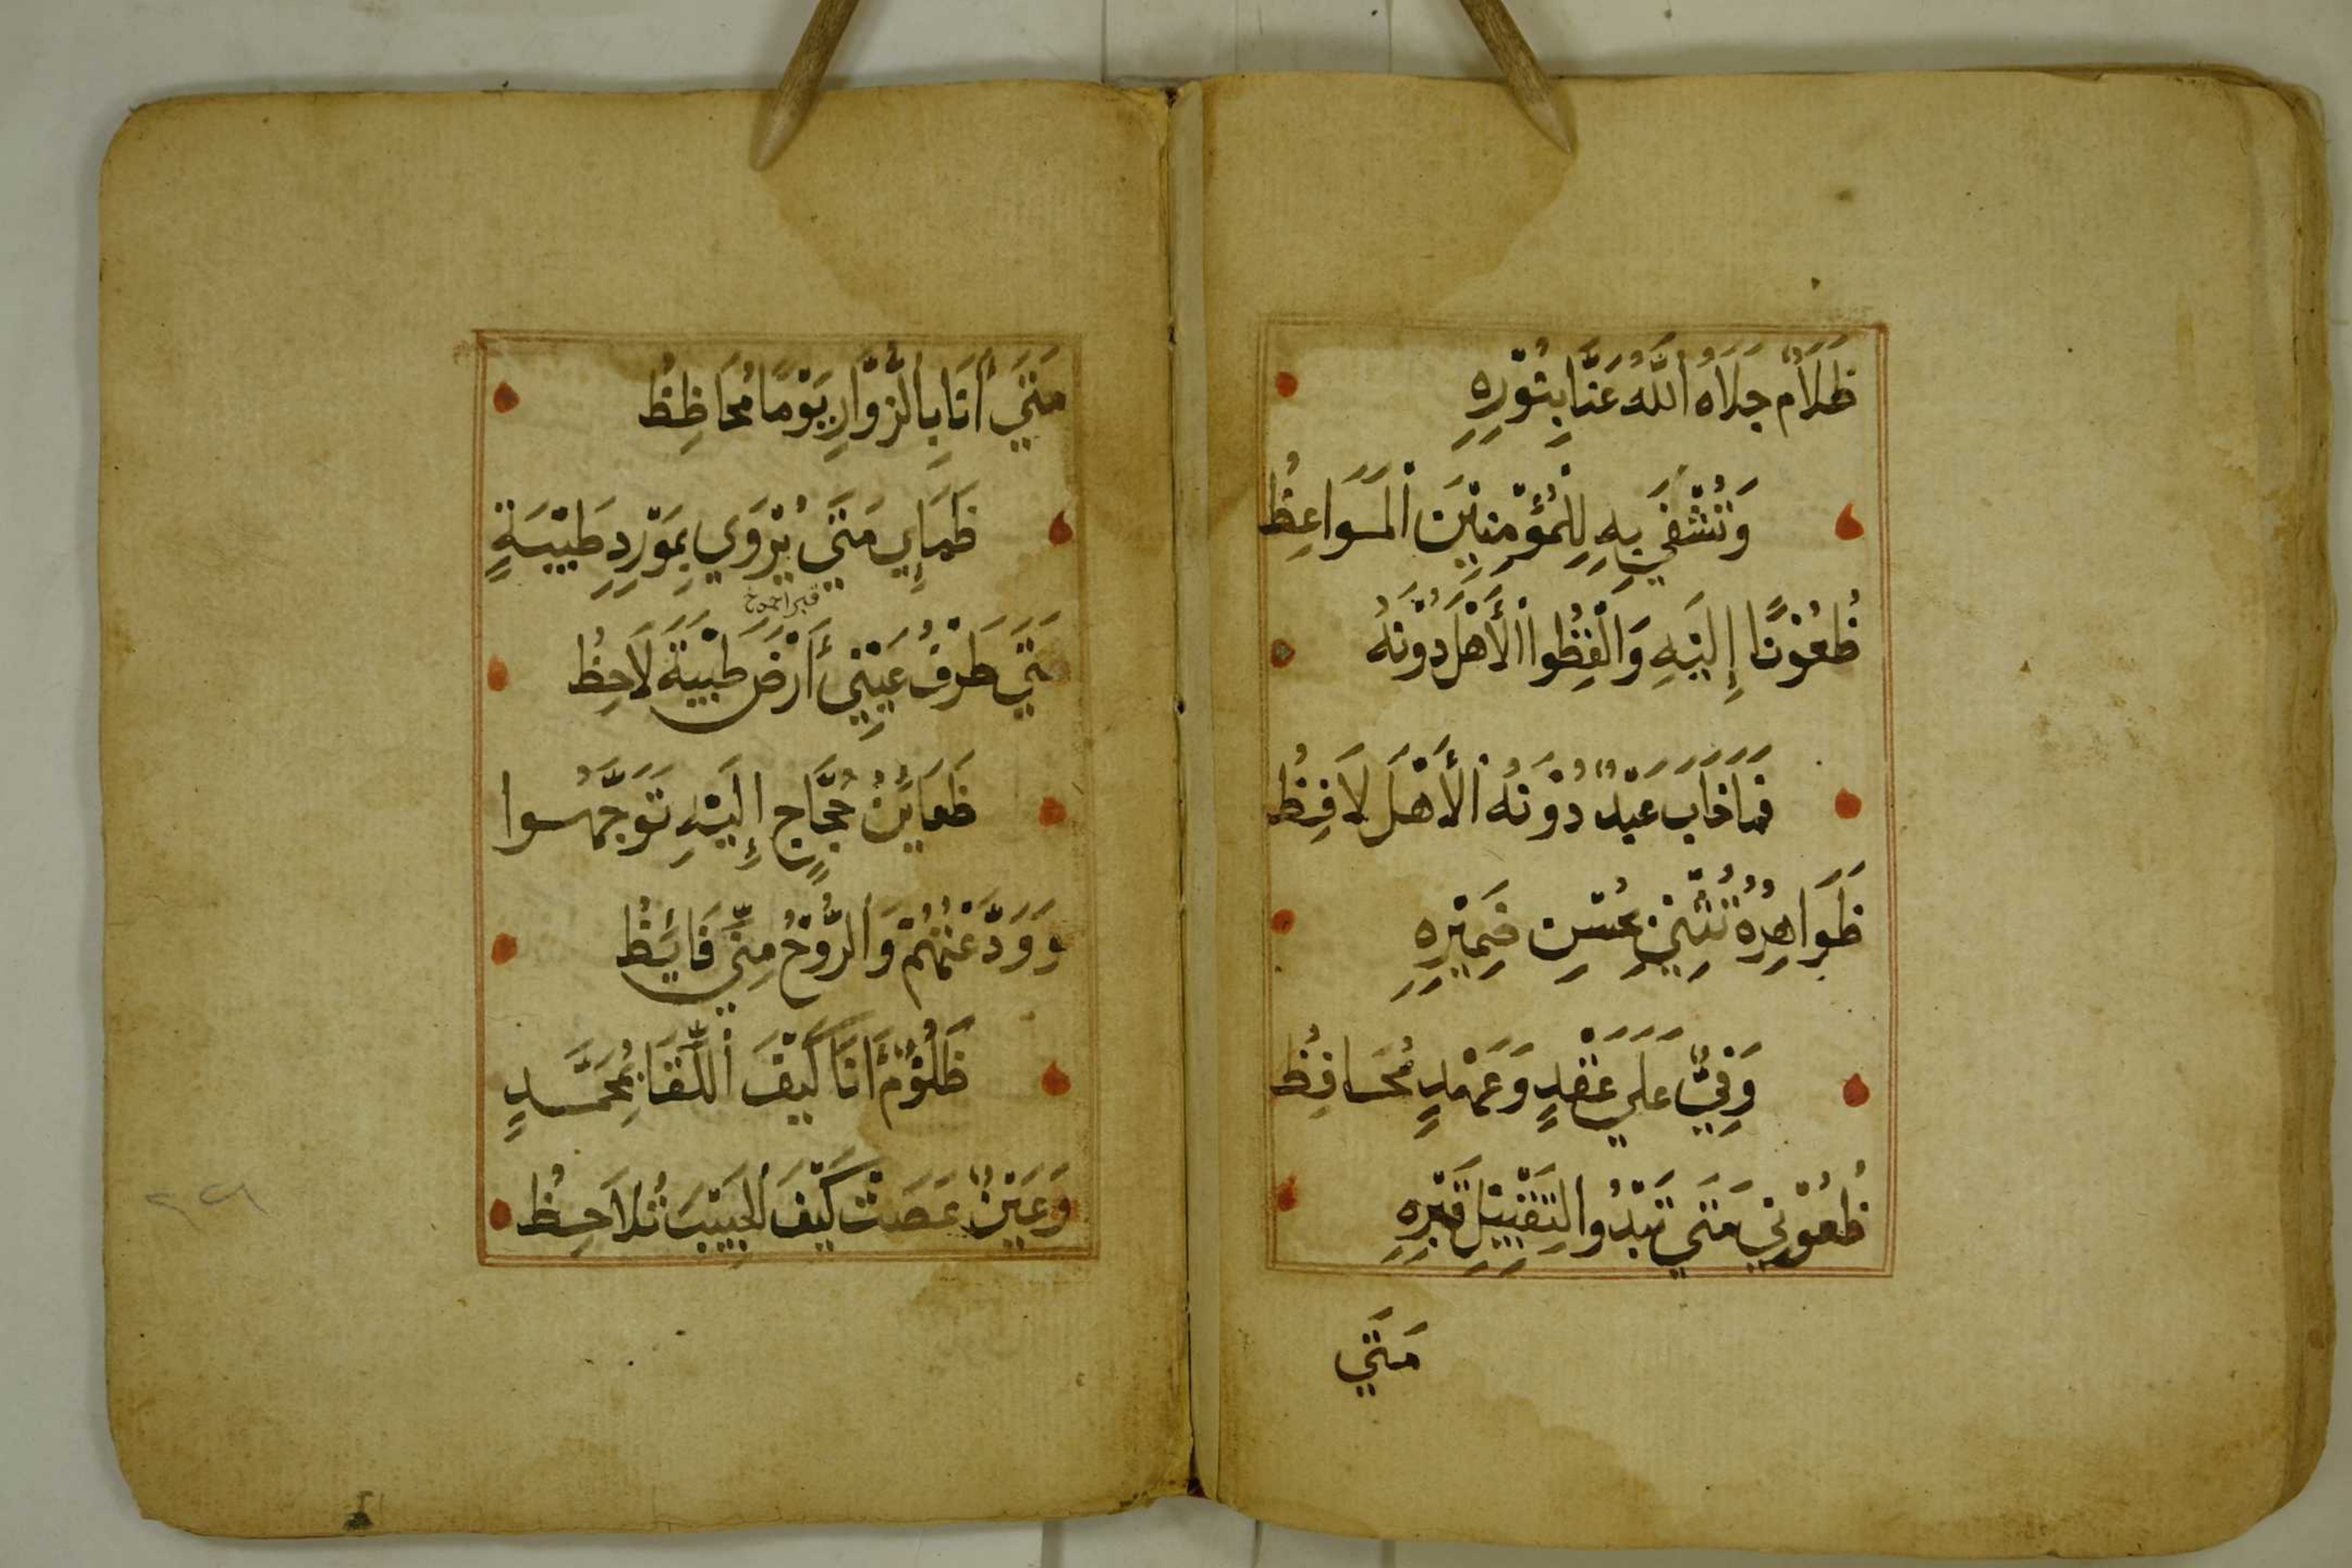 ظَلَامٌ جَلَاهُ اللَّهُ عَنَّا بِنُوْرِهِ
وَتُشْفَي بِهِ لِلْمُؤْمِنِيْنَ الْمَوَاعِظُ
ظُعُوْنًا إِلَيْهِ وَالْفِظُوا الْأَهْلَ دُوْنَهُ
فَمَا خَابَ عَبْدٌ دُوْنَهُ الْأَهْلَ لَافِظُ
ظَوَاهِرُهُ تُثْنِيْ بِحُسْنِ ضَمِيْرِهِ
وَفِيٌّ عَلَي عَقْدٍ وَعَهْدٍ مُحَافِظُ
ظُعُوْنِي مَتَي تَبْدُوا لِتَقْبِيْلِ قَبْرِهِ
مَتَي
مَتَي أَنَا بِالزُّوَّارِ يَوْمًا مُحَاظِظُ
ظَمَإِي مَتَي يُرْوَي بِمَوْرِدِ طَيْبَةٍ
قبر احمد خ
مَتَي طَرْفُ عَيْنِي أَرْضَ طَيْبَةَ لَاحِظُ
ظَعَائِنُ حُجَّاجٍ إِلَيْهِ تَوَجَّهُوا
وَوَدَّعْتُهُمْ وَالرُّوْحُ مِنِّي فَائِظُ
ظَلُوْمٌ أَنَا كَيْفَ اللِّقَا بِمُحَمَّدٍ
وَعَيْنٌ عَصَتْ كَيْفَ الْحَبِيْبَ تُلَاحِظُ